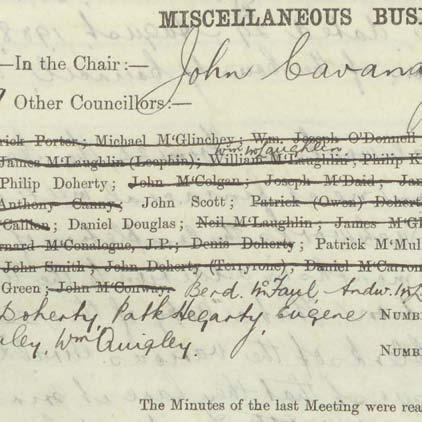 MISCELLANEOUS BUSI
—In the Chair:— John Cavana
Other Councillors:—
rick Porter; Michael M'Glinchey; Wm. Joseph O'Donnell
Wm McLaughlin
James M'Laughlin (Leophin); William M'Laughlin; Philip K
Philip Doherty; John M'Colgan; Joseph M'Daid; Jam
Anthony Canny; John Scott; Patrick (Owen) Dohert
Callion; Daniel Douglas; Neil M'Laughlin; James M'Gl
ernard M'Conalogue, J.P.; Denis Doherty; Patrick M'Mul
John Smith; John Doherty (Terryrone); Daniel M'Carron
Green; John M'Conway. Berd. McFaul, Andw. Mc
Doherty, Patk Hegarty, Eugene NUMB
aley, Wm Quigley. NUMB
The Minutes of the last Meeting were rea